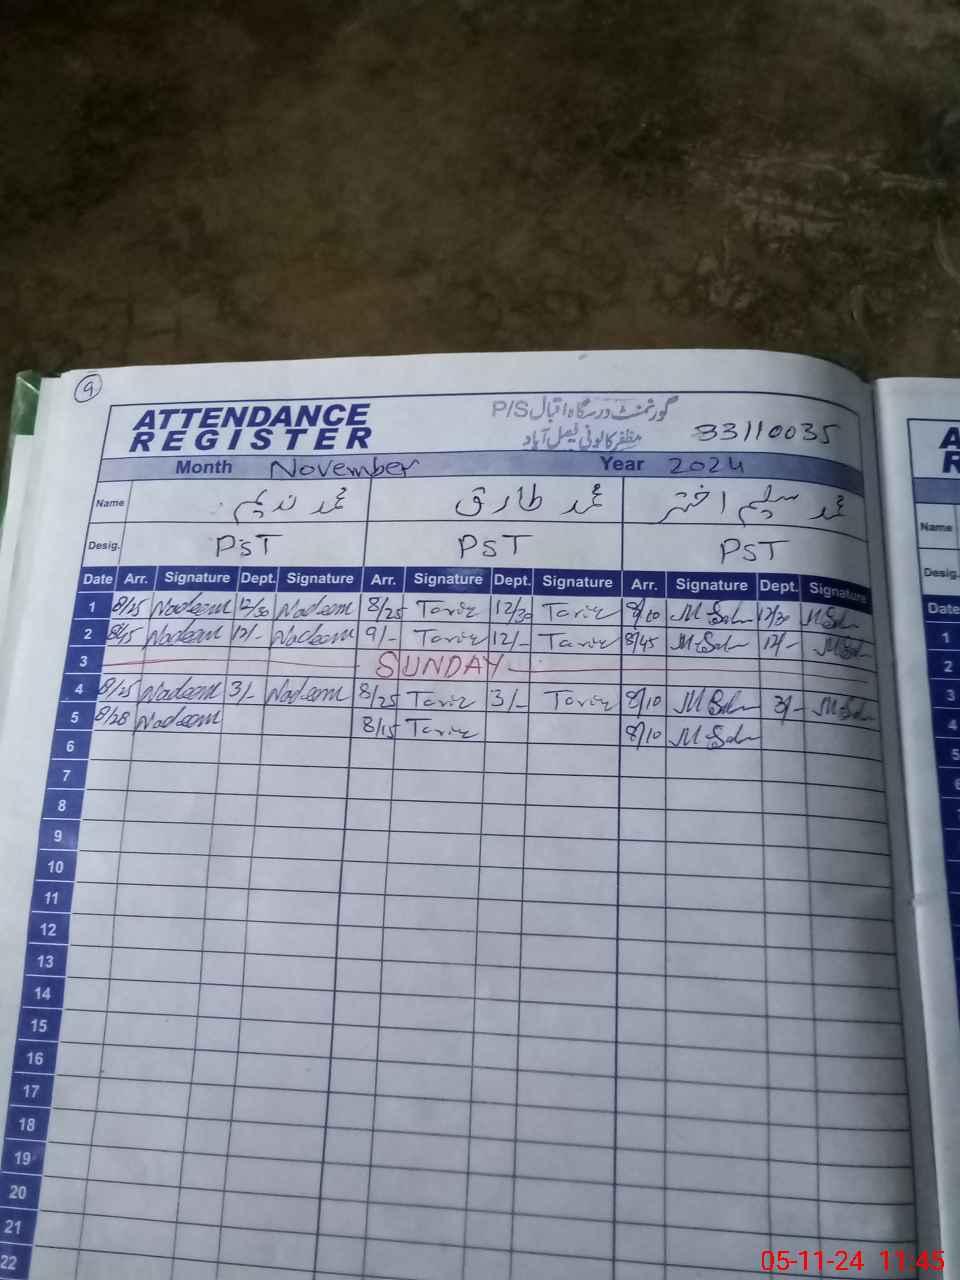 9
ATTENDANCE
REGISTER
گورنمنٹ درسگاہ اقبال P/S
مظفر کالونی فیصل آباد
33110035
Month November Year 2024
Name محمد ندیم محمد طارق محمد سلیم اختر
Desig. PST PST PST
Date Arr. Signature Dept. Signature Arr. Signature Dept. Signature Arr. Signature Dept. Signature
1 8/25 Nadeem 12/30 Nadeem 8/25 Tariq 12/30 Tariq 8/10 12/30
2 8/45 Nadeem 12/- Nadeem 9/- Tariq 12/- Tariq 8/45 12/-
3 SUNDAY
4 8/25 Nadeem 3/- Nadeem 8/25 Tariq 3/- Tariq 8/10 3/-
5 8/28 Nadeem 8/15 Tariq 8/10
6
7
8
9
10
11
12
13
14
15
16
17
18
19
20
21
22
A
R
Name
Desig.
Date
1
2
3
4
5
05-11-24 11:45